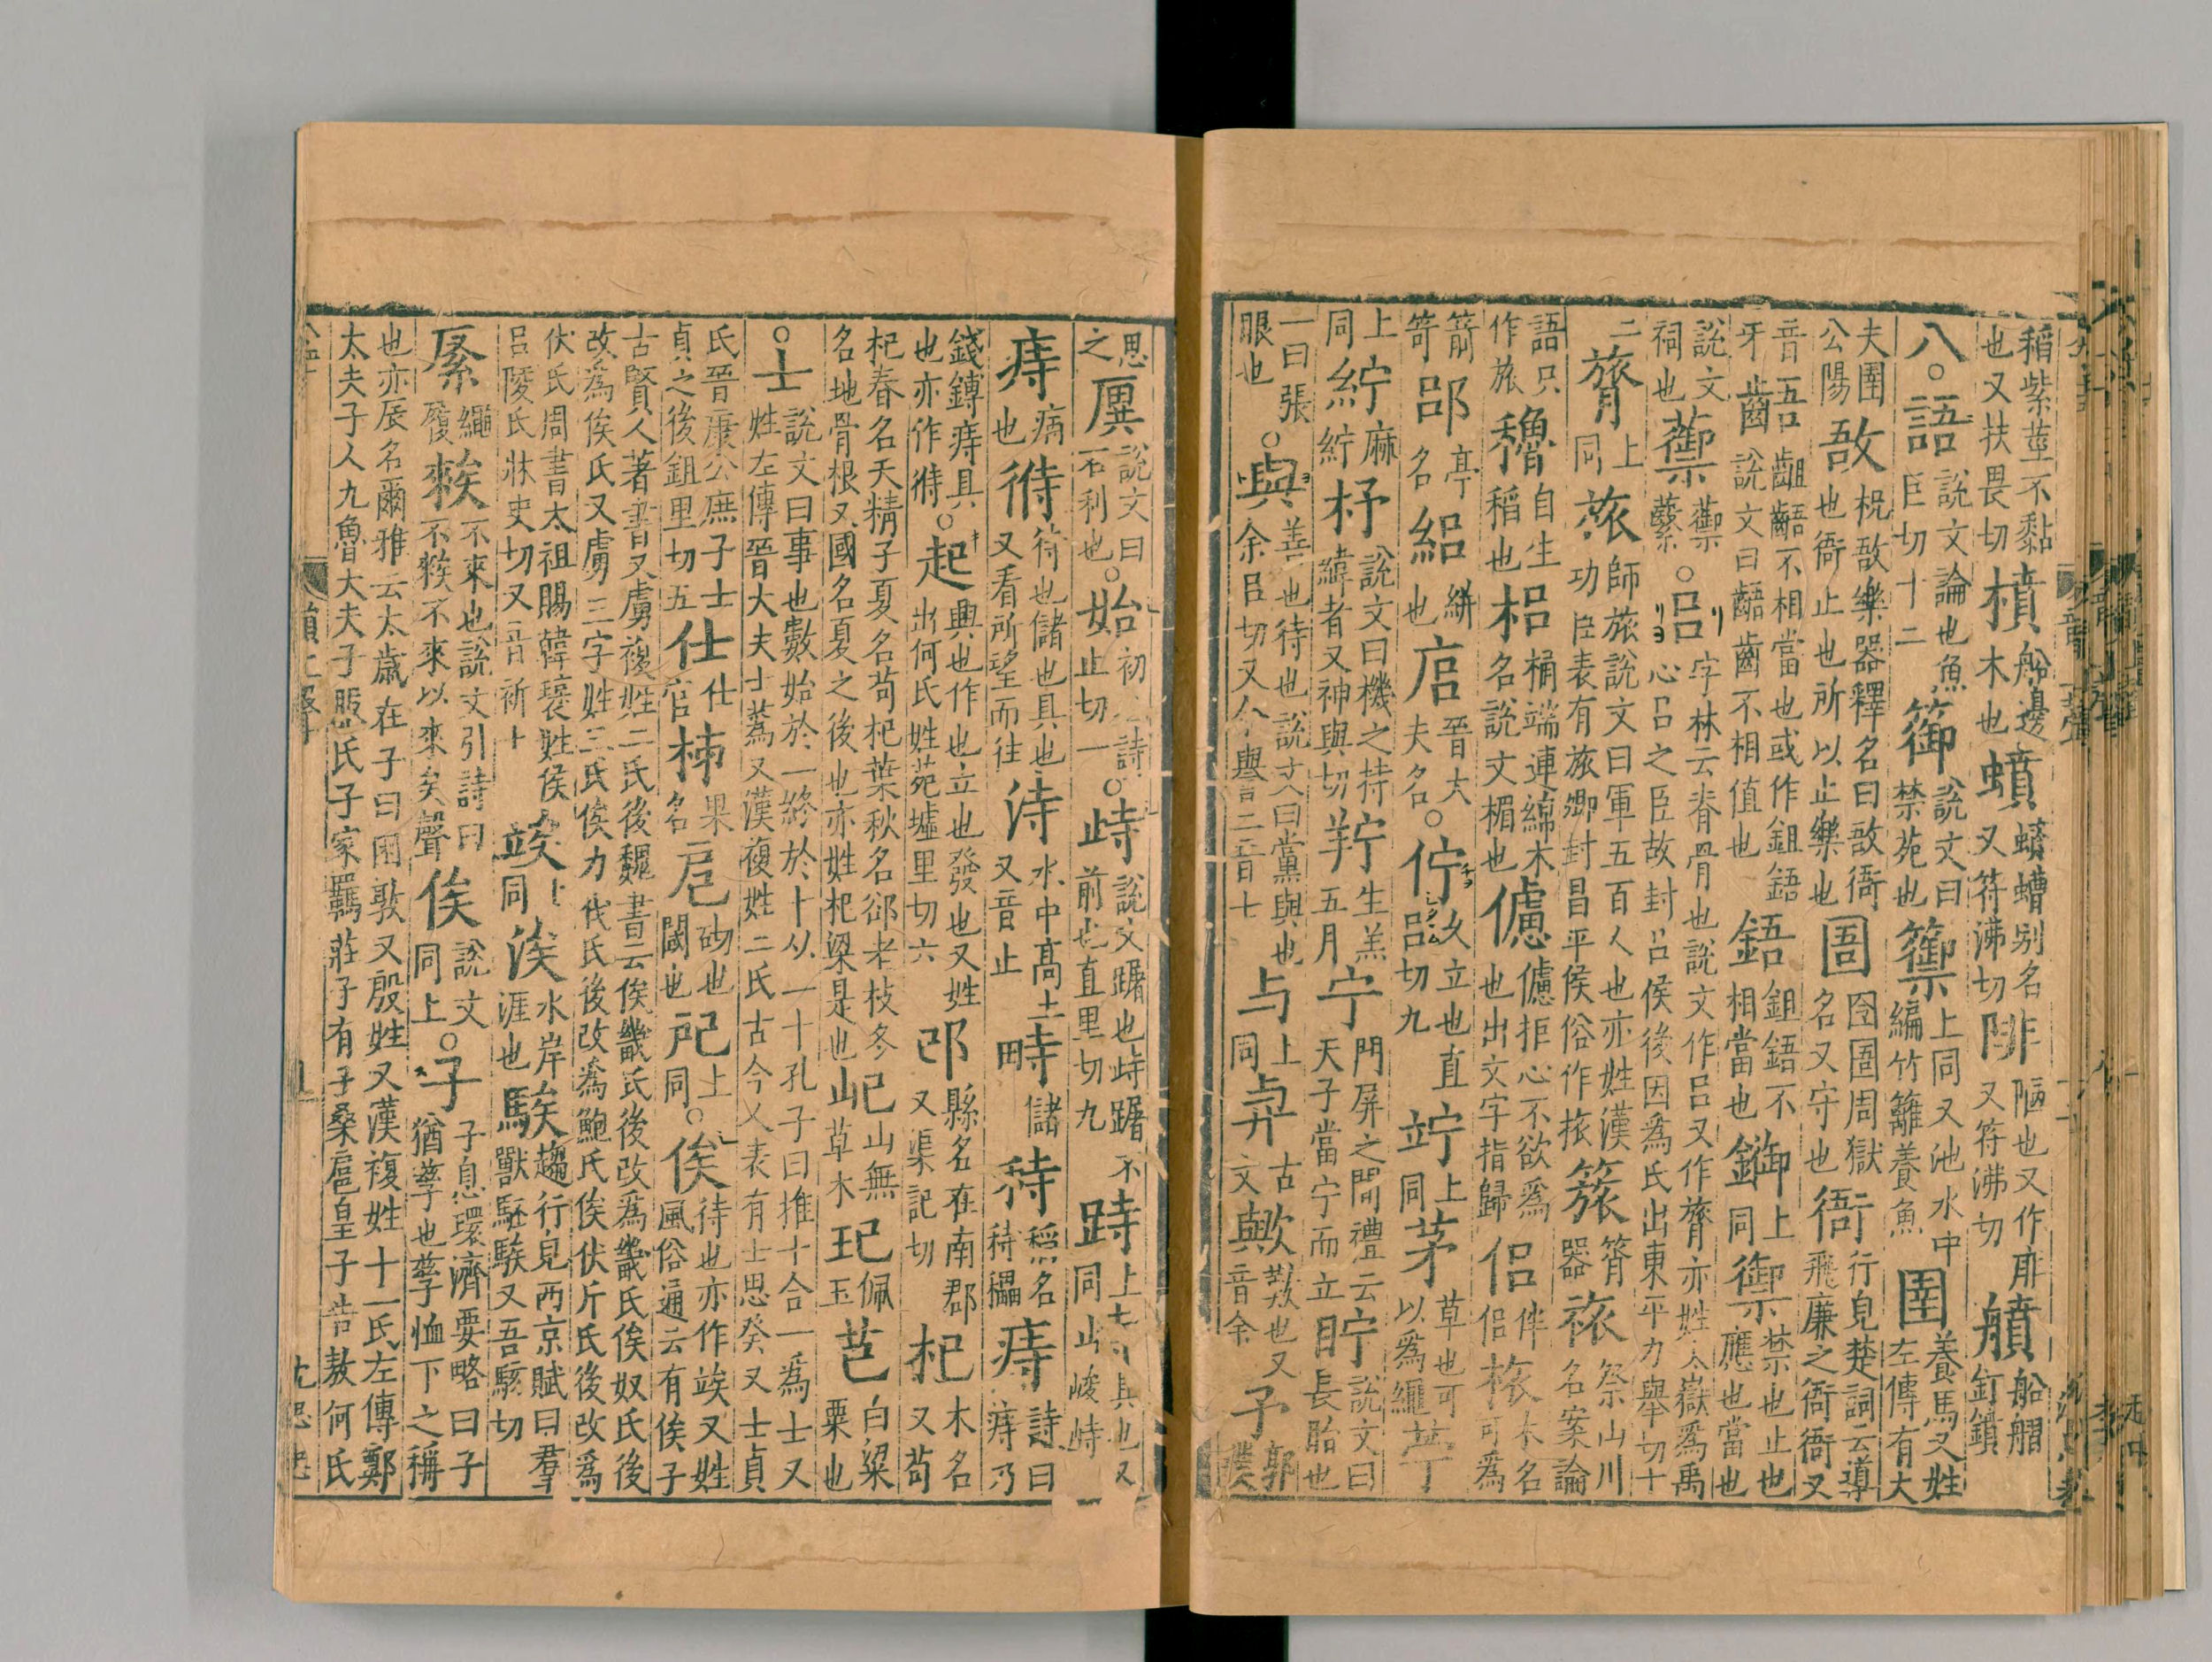 稻紫莖不黏也又扶畏切橨船邊木也蟦蠐螬别名又符沸切陫陋也又作厞又符沸切船䑳釘鎖
八○語說文論也魚巨切十二篽說文曰禁苑也籞上同又池水中編竹籬養魚圉養馬又姓左傳有大
夫圉公陽敔柷敔樂器釋名曰敔衙也衙止也所以止樂也圄囹圄周獄名又守也衙行皃楚詞云導飛廉之衙衙又
音牙齬齟齬不相當也或作鉏鋙說文曰齬齒不相值也鋙鉏鋙不相當也上同禦禁也止也應也當也
說文祠也蘌蘌蘩○呂字林云脊骨也說文作呂又作膂亦姓太嶽為禹心呂之臣故封呂侯後因為氏出東平力舉切十
二膂上同旅師旅說文曰軍五百人也亦姓漢功臣表有旅卿封昌平侯俗作挔筲器祣祭山川名案論
語只作旅穭自生稻也梠桷端連綿木名說文楣也儢儢拒心不欲為也出文字指歸侶伴侶木名可為
箭笴郘亭名絽絣也晉大夫名○佇久立也直呂切九竚上同苧草也可以為繩
上同紵麻紵杼說文曰機之持緯者又神與切羜生羔五月宁門屏之閒禮云天子當宁而立眝說文曰長眙也
一曰張眼也○與善也待也說文曰黨與也余呂切又余譽二音七与上同古文歟歎也又音余予郭璞
思之說文曰石利也○始初也詩止切一○峙說文躇也峙躇不前也直里切九跱上同又具也又峻峙
痔病也偫待也儲也具也又看所望而往洔水中高土又音止畤儲稻名庤詩曰庤乃
錢鎛庤具也亦作㣥○起興也作也立也發也又姓出何氏姓苑墟里切六邔縣名在南郡又渠記切杞木名又苟
杞春名天精子夏名苟杞葉秋名卻老枝冬名地骨根又國名夏之後也亦姓杞梁是也屺山無草木玘佩玉芑白粱粟也
○士說文曰事也數始於一終於十从一十孔子曰推十合一為士又姓左傳晉大夫士蔿又漢複姓二氏古今人表有士思癸又士貞
氏晉康公庶子士貞之後鉏里切五仕仕官柹果名戺砌也閾也上同○俟待也亦作竢又姓風俗通云有俟子
古賢人著書又虜複姓二氏後魏書云俟畿氏後改為畿氏俟奴氏後改為俟氏又虜三字姓三氏俟力伐氏後改為鮑氏俟伏斤氏後改為
伏氏周書太祖賜韓褒姓侯呂陵氏牀史切又音祈十竢上同涘水岸涯也騃趨行皃西京賦曰羣獸駓騃又吾駭切
繩履𥏳不來也說文引詩曰不𥏳不來以來矣聲俟說文同上○子子息環濟要略曰子猶孳也孳恤下之稱
也亦辰名爾雅云太歲在子曰困敦又殷姓又漢複姓十一氏左傳鄭太夫子人九魯大夫子服氏子家羈莊子有子桑扈皇子告敖何氏